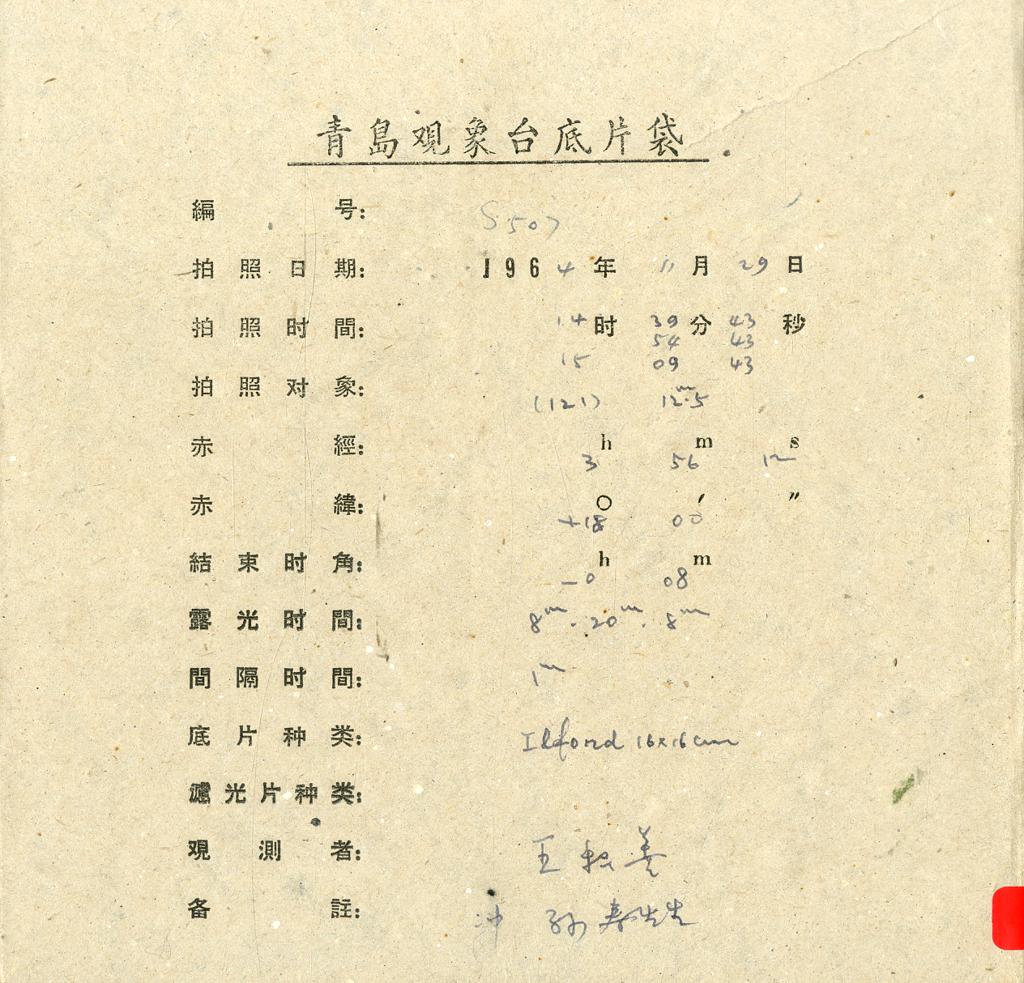 青島观象台底片袋
編号： S507
拍照日期： 1964年 11月 29日
拍照时間： 14时 39分 43秒
54 43
15 09 43
拍照对象： (121) 12.5ᵐ
赤經： 3h 56m 12s
赤緯： +18° 00′ ″
結束时角： -0h 08m
露光时間： 8ᵐ. 20ᵐ. 8ᵐ
間隔时間： 1ᵐ
底片种类： Ilford 16x16cm
濾光片种类：
观測者： 王 善
备註： 冲 孙寿先生